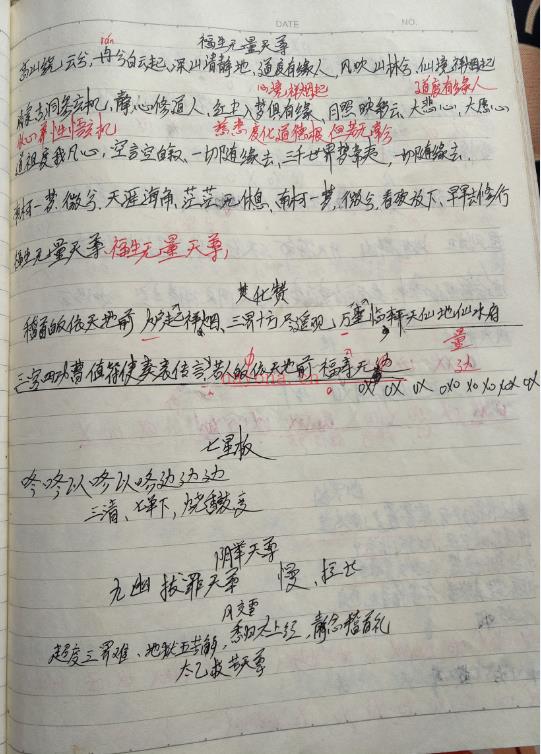 DATE NO.
福生无量天尊
高山绕云兮,冉兮白云起,深山清静地,道度有缘人,风吹山林兮,仙境祥烟起
仙境祥烟起 道度有缘人
洞参玄机,静心修道人,红尘入梦俱有缘,月照映彩云,大悲心,大愿心
修心养性悟玄机 慈悲度化道德报
道祖度我凡心,空言空自叙,一切随缘去,三千世界梦常来,一切随缘去.
南柯一梦,微兮,天涯海角,茫茫无休息,南柯一梦,微兮,看破放下,早早去修行
福生无量天尊,福生无量天尊,
焚化赞
稽首皈依天地前 炉起祥烟,三界十方尽遥观,万灵临轩天仙地仙水府
量
三官四功曹值符使奏表传言 皈依天地前 福寿无
边
七星板
咚咚以咚以咚边边边
三清、七军下,烧香数度
阴举天尊
九幽拔罪天尊 慢、拉长
风交雪
超度三界难、地狱五苦解,悉归太上经,静念稽首礼
太乙救苦天尊